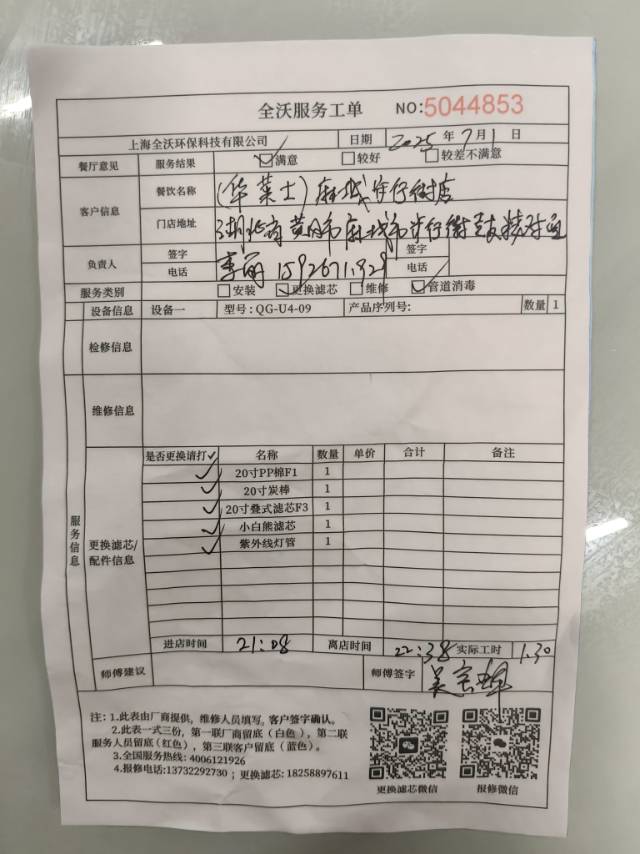 全沃服务工单 NO:5044853
上海全沃环保科技有限公司 日期 2025 年 7月 1 日
餐厅意见 服务结果 满意 较好 较差不满意
客户信息 餐饮名称 (华莱士) 麻城步行街店
门店地址 湖北省黄冈市麻城市步行街
负责人 签字 李丽 签字
电话 电话
服务类别 安装 更换滤芯 维修 管道消毒
设备信息 设备一 型号: QG-U4-09 产品序列号: 数量 1
检修信息
维修信息
服务信息
更换滤芯/
配件信息
是否更换请打✓ 名称 数量 单价 合计 备注
✓ 20寸PP棉F1 1
✓ 20寸炭棒 1
✓ 20寸叠式滤芯F3 1
✓ 小白熊滤芯 1
✓ 紫外线灯管 1
进店时间 21:08 离店时间 22:38 实际工时 1.30
师傅建议 师傅签字 吴
注: 1.此表由厂商提供，维修人员填写，客户签字确认。
2.此表一式三份，第一联厂商留底(白色)，第二联
服务人员留底(红色)，第三联客户留底（蓝色）。
3.全国服务热线: 4006121926
4.报修电话:13732292730；更换滤芯: 18258897611
更换滤芯微信 报修微信